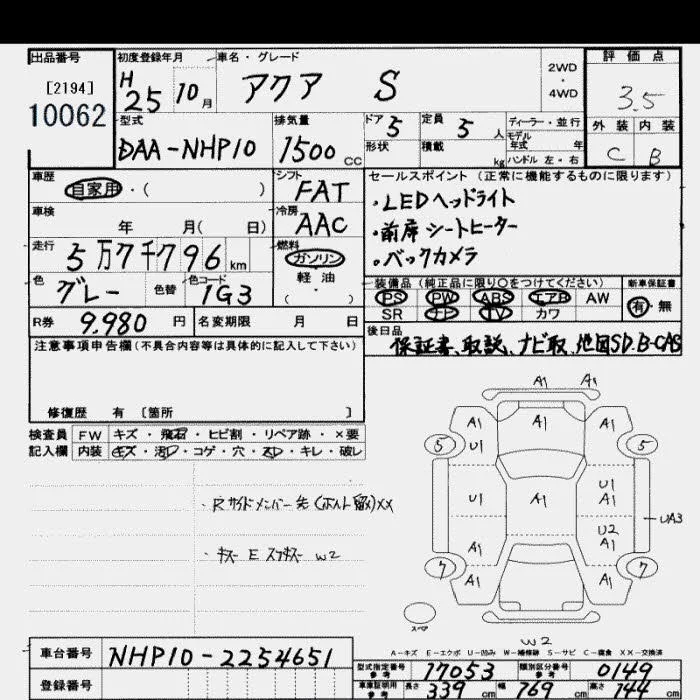 出品番号 初度登録年月 車名・グレード 評価点
[2194] H 25 10月 アクア S 2WD・4WD 3.5
10062
型式 排気量 ドア 5 定員 5人 ディーラー・並行 外装 内装
DAA-NHP10 1500cc 形状 積載 kg モデル年式 年 C B
ハンドル 左・右
車歴 シフト セールスポイント (正常に機能するものに限ります)
自家用・( ) FAT ・LEDヘッドライト
車検 冷房 ・前席シートヒーター
年 月( 日) AAC ・バックカメラ
走行 燃料
5万7千796km ガソリン
色 色替 色コード 軽油 装備品 (純正品に限り○をつけてください) 新車保証書
グレー 1G3 ( ・ ) PS PW ABS エアB AW 有・無
SR ナビ TV カワ
R券 9.980円 名変期限 月 日 後日品
保証書、取説、ナビ取、地図SD、B-CAS
注意事項申告欄(不具合内容等は具体的に記入して下さい)
修復歴 有 [箇所 ]
検査員 FW キズ・飛石・ヒビ割・リペア跡・×要
記入欄 内装 キズ・汚レ・コゲ・穴・スレ・キレ・破レ
XX
・キズ E W2
A1 A1
A1 A1 A1
5 U1 5
U1 A1 U1 A1
UA3
U2 A1
A1
7 A1 A1 7
スペア
W2
A-キズ E-エクボ U-凹み W-補修跡 S-サビ C-腐食 XX-交換済
車台番号 NHP10-2254651
型式指定番号 参考 17053 類別区分番号 参考 0149
登録番号 車庫証明用 参考 長さ 399cm 幅 169cm 高さ 144cm